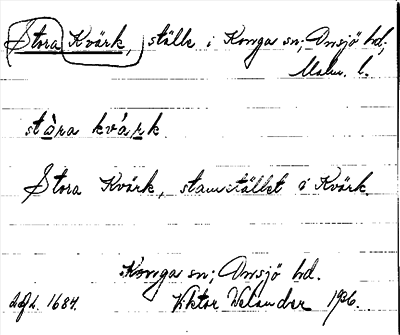 Stora Kvärk, ställe i Konga sn; Onsjö hd;
Malm. l.
stòra kvárk.
Stora Kvärk, stamstället i Kvärk.
Konga sn; Onsjö hd.
Viktor Velander 1936.
1684.